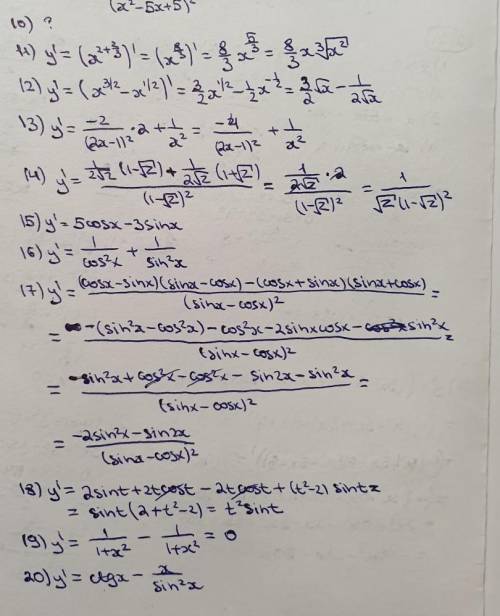 (x²-5x+5)²
10) ?
11) y' = (x^{2+2/3})' = (x^{8/3})' = 8/3 x^{5/3} = 8/3 x ∛x²
12) y' = (x^{3/2} - x^{1/2})' = 3/2 x^{1/2} - 1/2 x^{-1/2} = 3/2 √x - 1/(2√x)
13) y' = -2/(2x-1)² · 2 + 1/x² = -4/(2x-1)² + 1/x²
14) y' = (1/(2√z) (1-√z) + 1/(2√z) (1+√z))/(1-√z)² = (1/(2√z) · 2)/(1-√z)² = 1/(√z (1-√z)²)
15) y' = 5cosx - 3sinx
16) y' = 1/cos²x + 1/sin²x
17) y' = ((cosx - sinx)(sinx - cosx) - (cosx + sinx)(sinx + cosx))/(sinx - cosx)² =
= (-(sin²x - cos²x) - cos²x - 2sinxcosx - sin²x)/(sinx - cosx)² =
= (-sin²x + cos²x - cos²x - sin2x - sin²x)/(sinx - cosx)² =
= (-2sin²x - sin2x)/(sinx - cosx)²
18) y' = 2sint + 2tcost - 2tcost + (t²-2) sint =
= sint (2+t²-2) = t²sint
19) y' = 1/(1+x²) - 1/(1+x²) = 0
20) y' = ctgx - x/sin²x